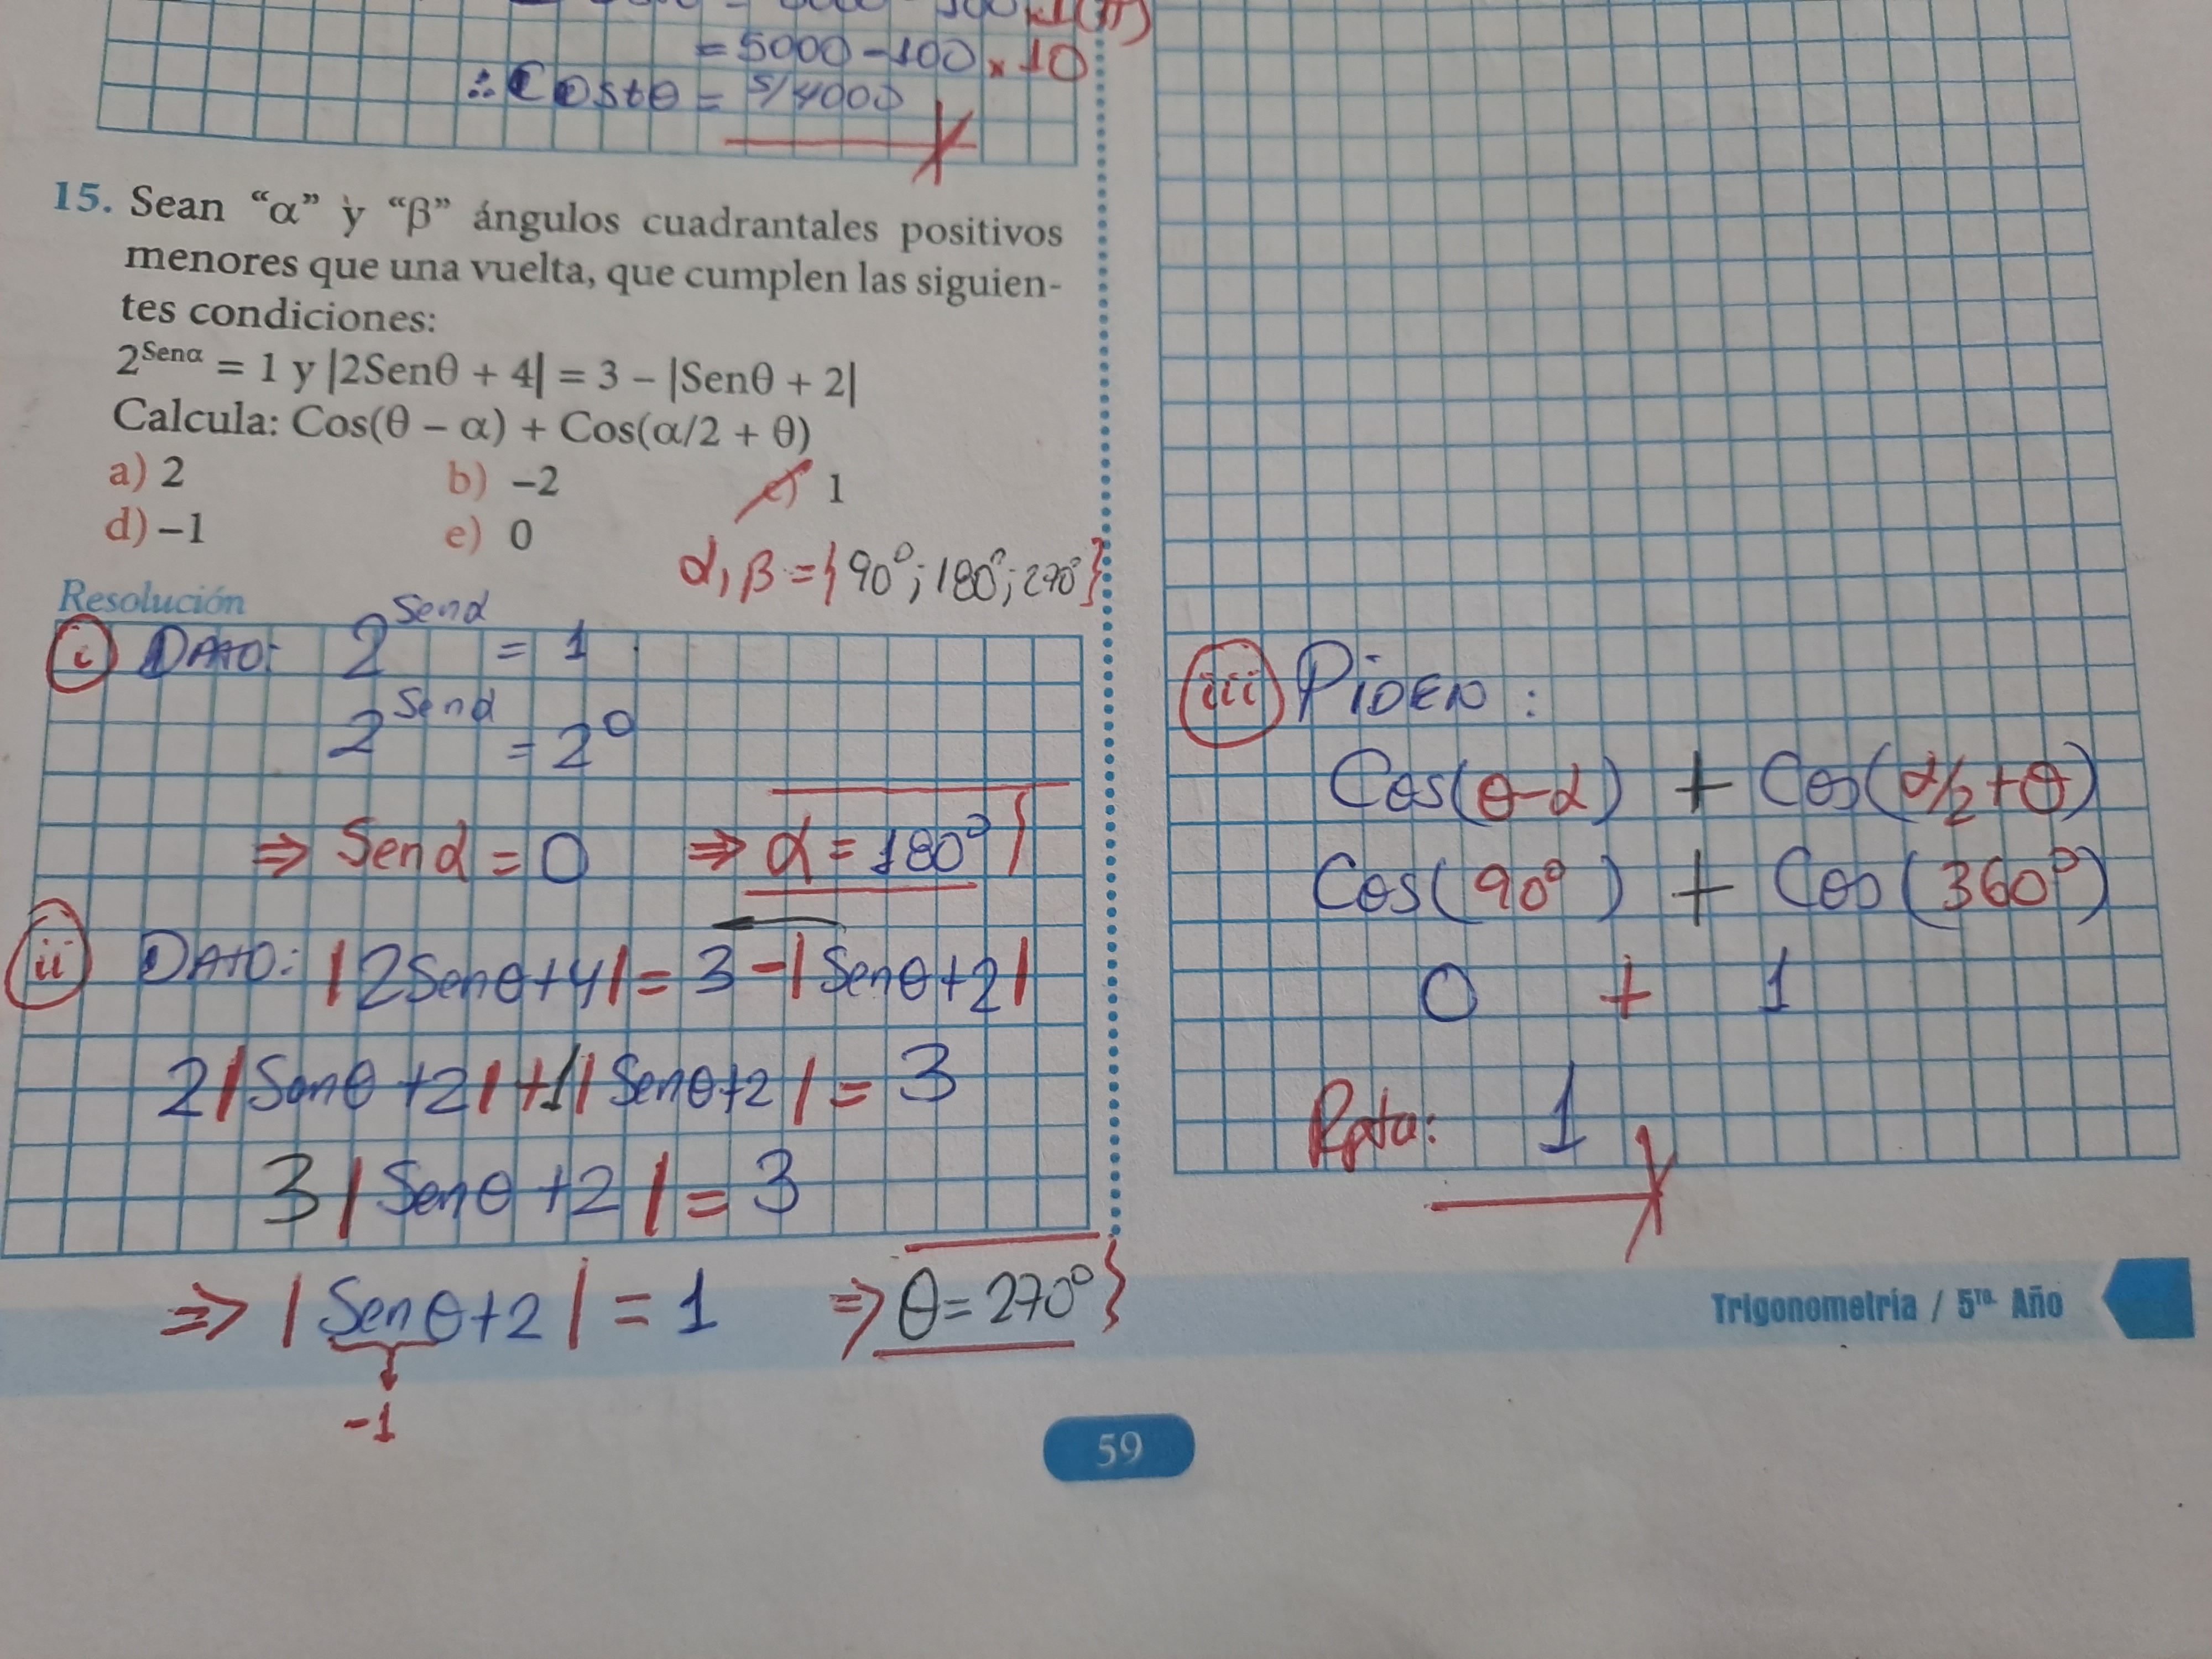 = 5000 - 100 × 10
∴ Costθ = S/ 4000
15. Sean “α” y “β” ángulos cuadrantales positivos
menores que una vuelta, que cumplen las siguien-
tes condiciones:
2^Senα = 1 y |2Senθ + 4| = 3 – |Senθ + 2|
Calcula: Cos(θ – α) + Cos(α/2 + θ)
a) 2 b) –2 c) 1
d) –1 e) 0
α, β = { 90°; 180°; 270° }
Resolución
i) DATO: 2^Senα = 1
2^Senα = 2^0
⇒ Senα = 0 ⇒ α = 180°
ii) DATO: |2Senθ+4| = 3 - |Senθ+2|
2|Senθ+2| + 1|Senθ+2| = 3
3|Senθ+2| = 3
⇒ |Senθ+2| = 1 ⇒ θ = 270°
-1
iii) PIDEN:
Cos(θ-α) + Cos(α/2+θ)
Cos(90°) + Cos(360°)
0 + 1
Rpta: 1
59
Trigonometría / 5to Año